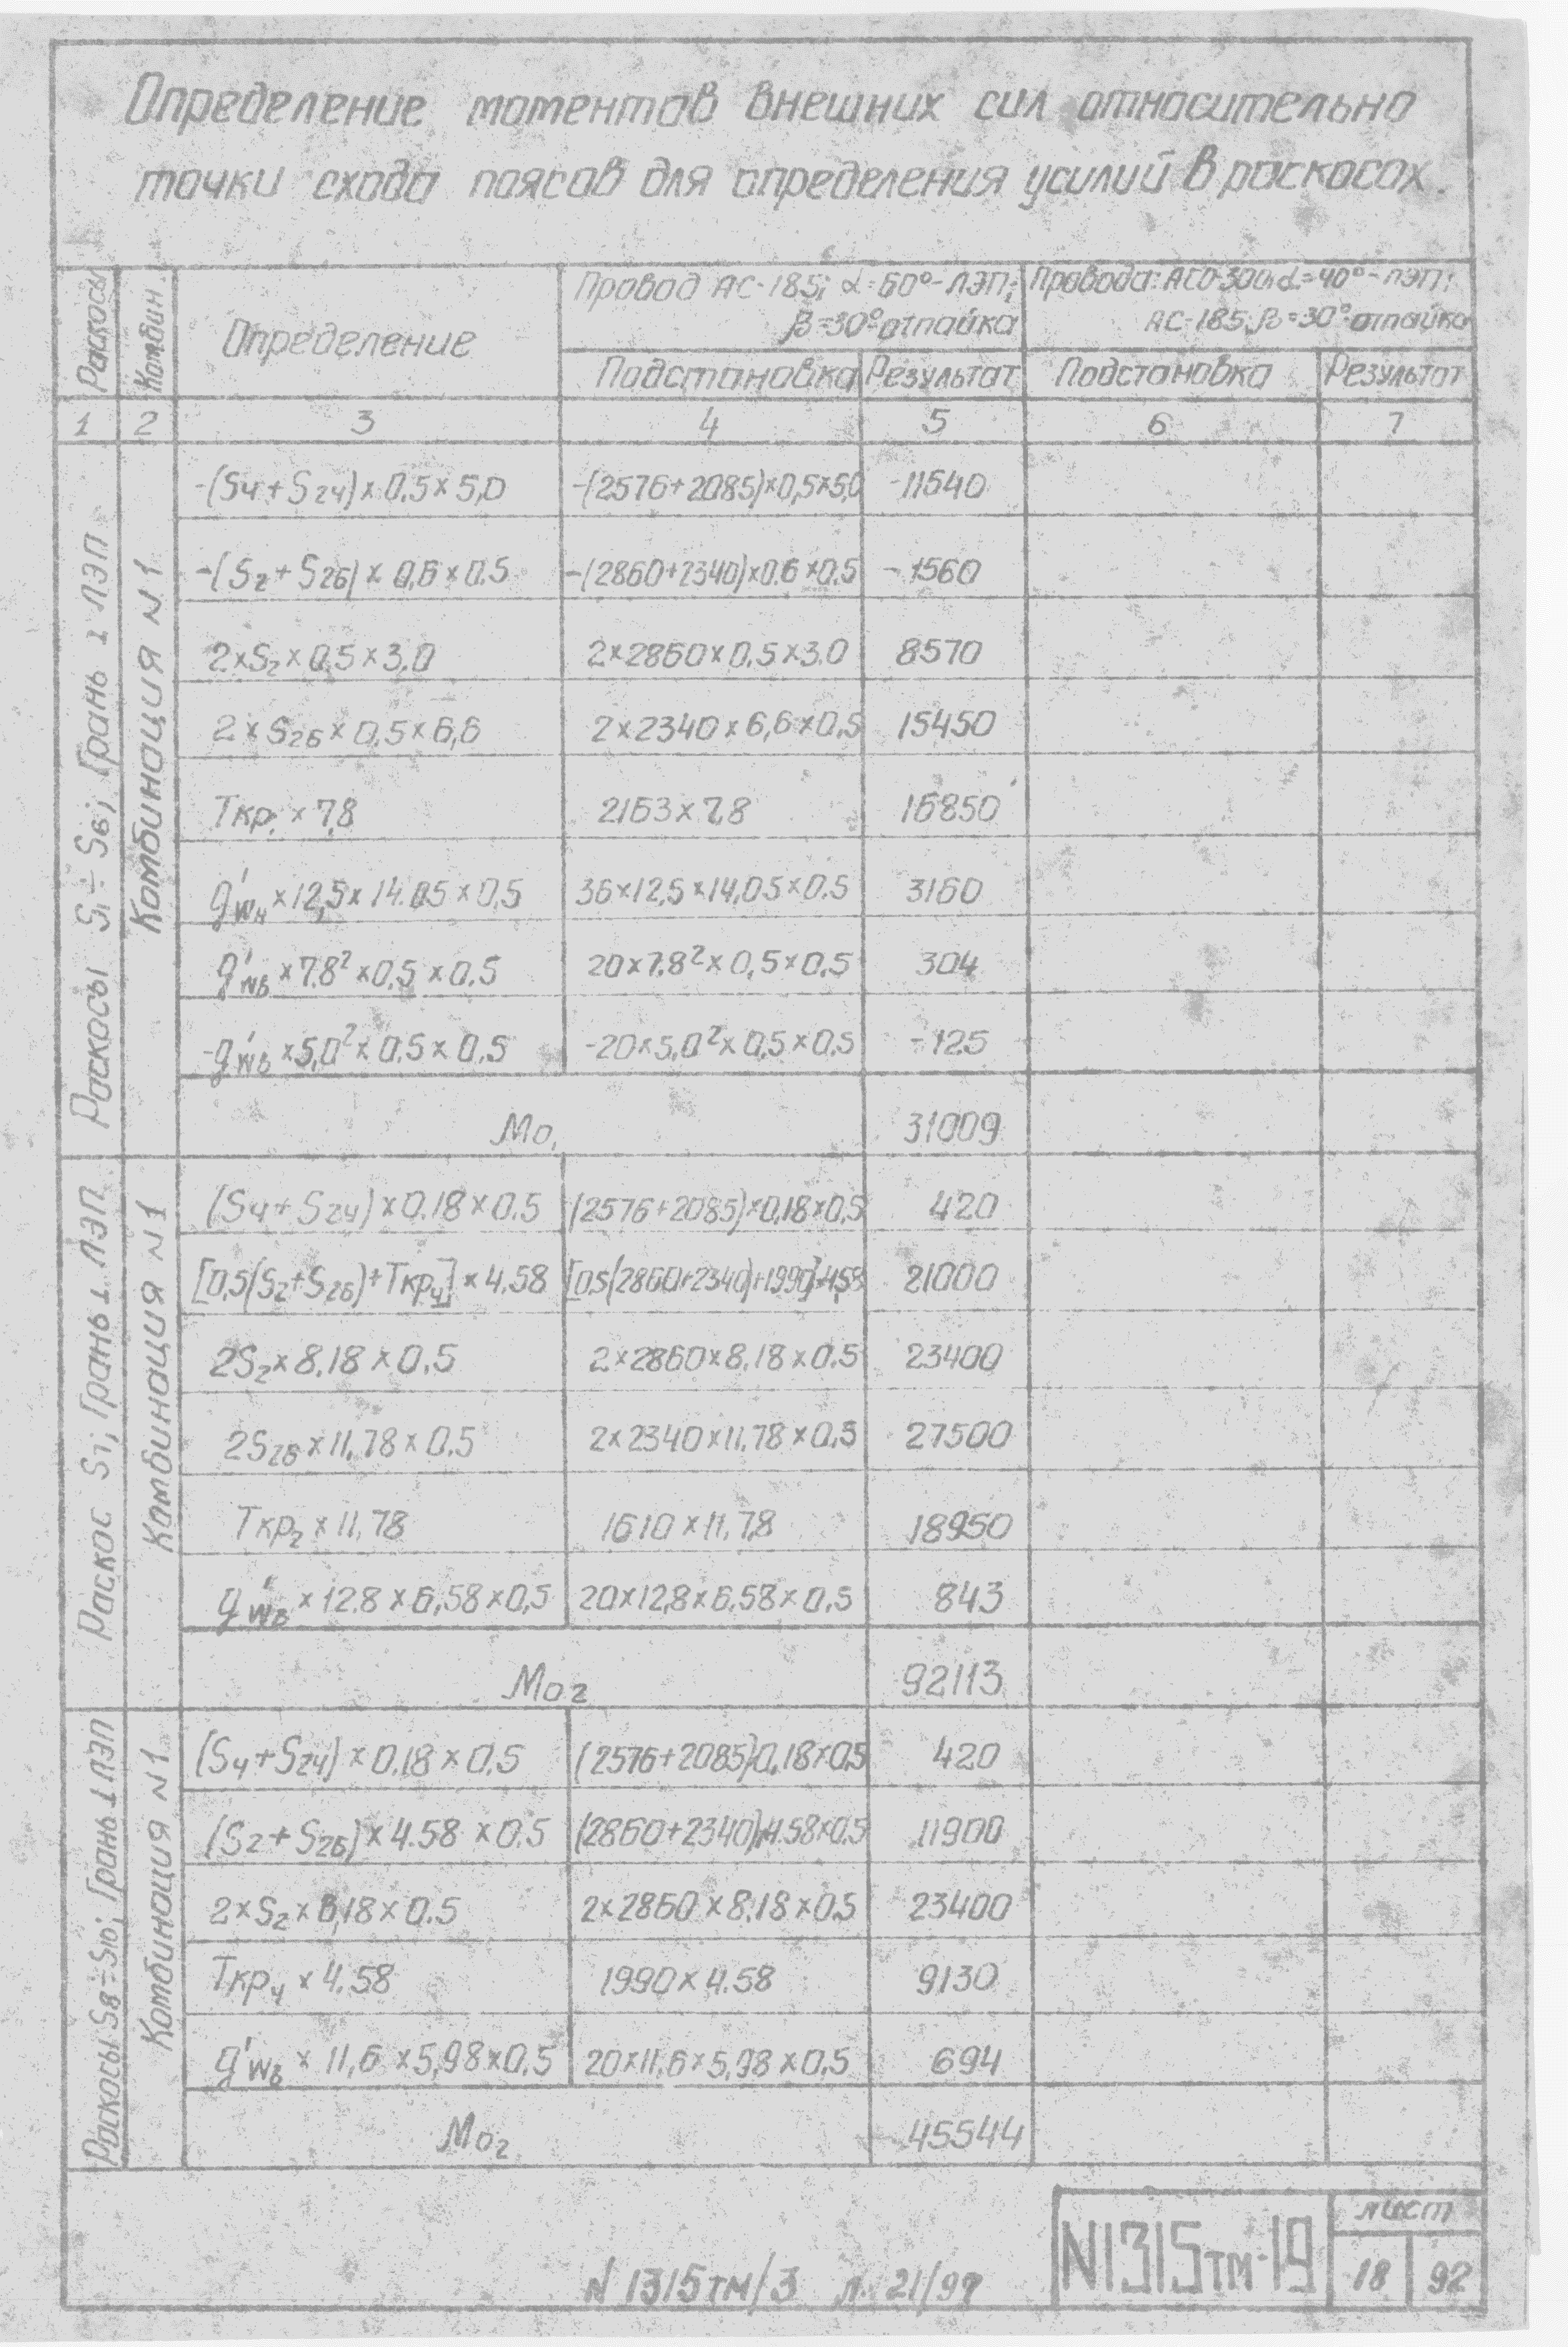 Определение моментов внешних сил относительно
точки схода поясов для определения усилий в раскосах.
Раскосы
Комбин.
Определение
Провод АС-185; α=60°-ЛЭП;
β=30°отпайка
Провода: АСО-300; α=40°-ЛЭП;
АС-185; β=30°-отпайка
Подстановка Результат Подстановка Результат
1 2 3 4 5 6 7
Раскосы S₁÷S₆; Грань ⊥ ЛЭП
Комбинация N1
-(S₄+S₂₄)×0,5×5,0 -(2576+2085)×0,5×5,0 -11640
-(S₂+S₂₆)×0,6×0.5 -(2860+2340)×0.6×0.5 -1560
2×S₂×0,5×3,0 2×2860×0.5×3.0 8570
2×S₂₆×0,5×6,6 2×2340×6,6×0,5 15450
Ткр₁×7,8 2163×7,8 16850
g'wн×12,5×14.05×0,5 36×12,5×14,05×0.5 3160
g'wв×7.8²×0,5×0.5 20×7.8²×0,5×0.5 304
-g'wв×5,0²×0.5×0.5 -20×5,0²×0,5×0.5 -125
Мо₁ 31009
Раскос S₇; Грань ⊥ ЛЭП
Комбинация N1
(S₄+S₂₄)×0.18×0.5 (2576+2085)×0,18×0,5 420
[0,5(S₂+S₂₆)+Ткр₄]×4.58 [0,5(2860+2340)+1990]×4,58 21000
2S₂×8.18×0.5 2×2860×8.18×0.5 23400
2S₂₆×11,78×0.5 2×2340×11.78×0.5 27500
Ткр₂×11,78 1610×11,78 18950
g'wв×12.8×6,58×0,5 20×12,8×6.58×0,5 843
Мо₂ 92113
Раскосы S₈÷S₁₀; Грань ⊥ ЛЭП
Комбинация N1
(S₄+S₂₄)×0,18×0,5 (2576+2085)·0,18×0.5 420
(S₂+S₂₆)×4.58×0.5 (2860+2340)×4.58×0.5 11900
2×S₂×8,18×0.5 2×2860×8,18×0.5 23400
Ткр₄×4.58 1990×4.58 9130
g'wв×11,6×5,98×0.5 20×11,6×5,98×0,5 694
Мо₂ 45544
N1315тм-19
лист
18 92
N 1315тм/3 л. 21/97